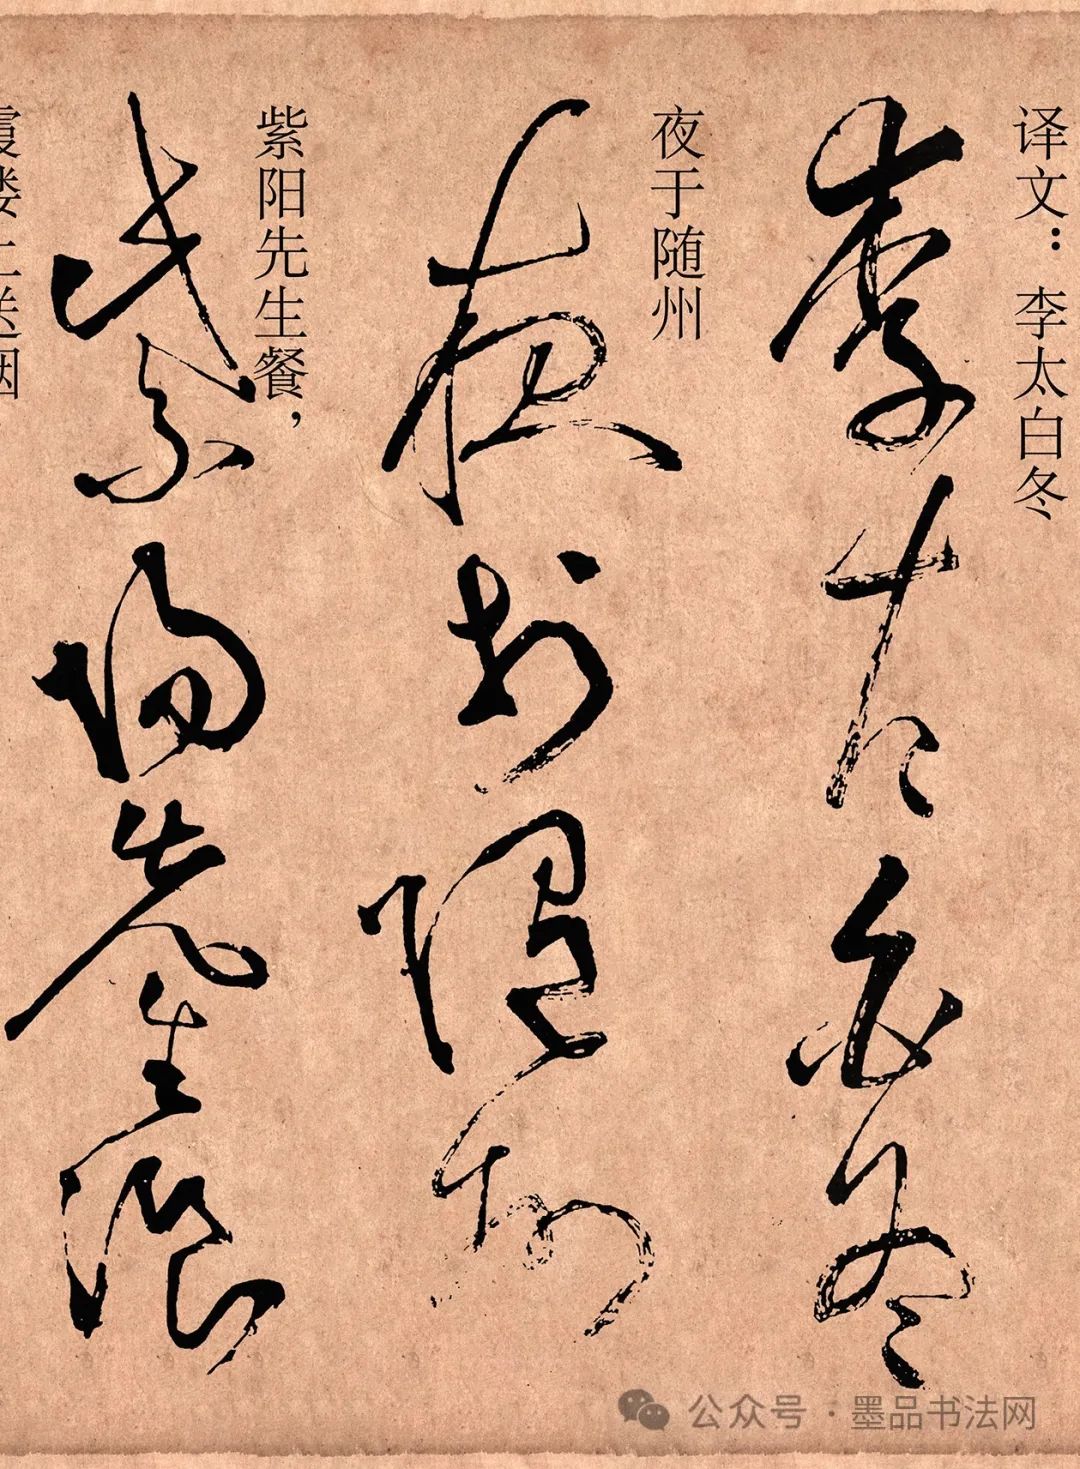 译文：李太白冬
李太白冬
夜于随州
夜於隨州
紫阳先生餐，
紫陽先生湌
霞楼上送烟
公众号·墨品书法网